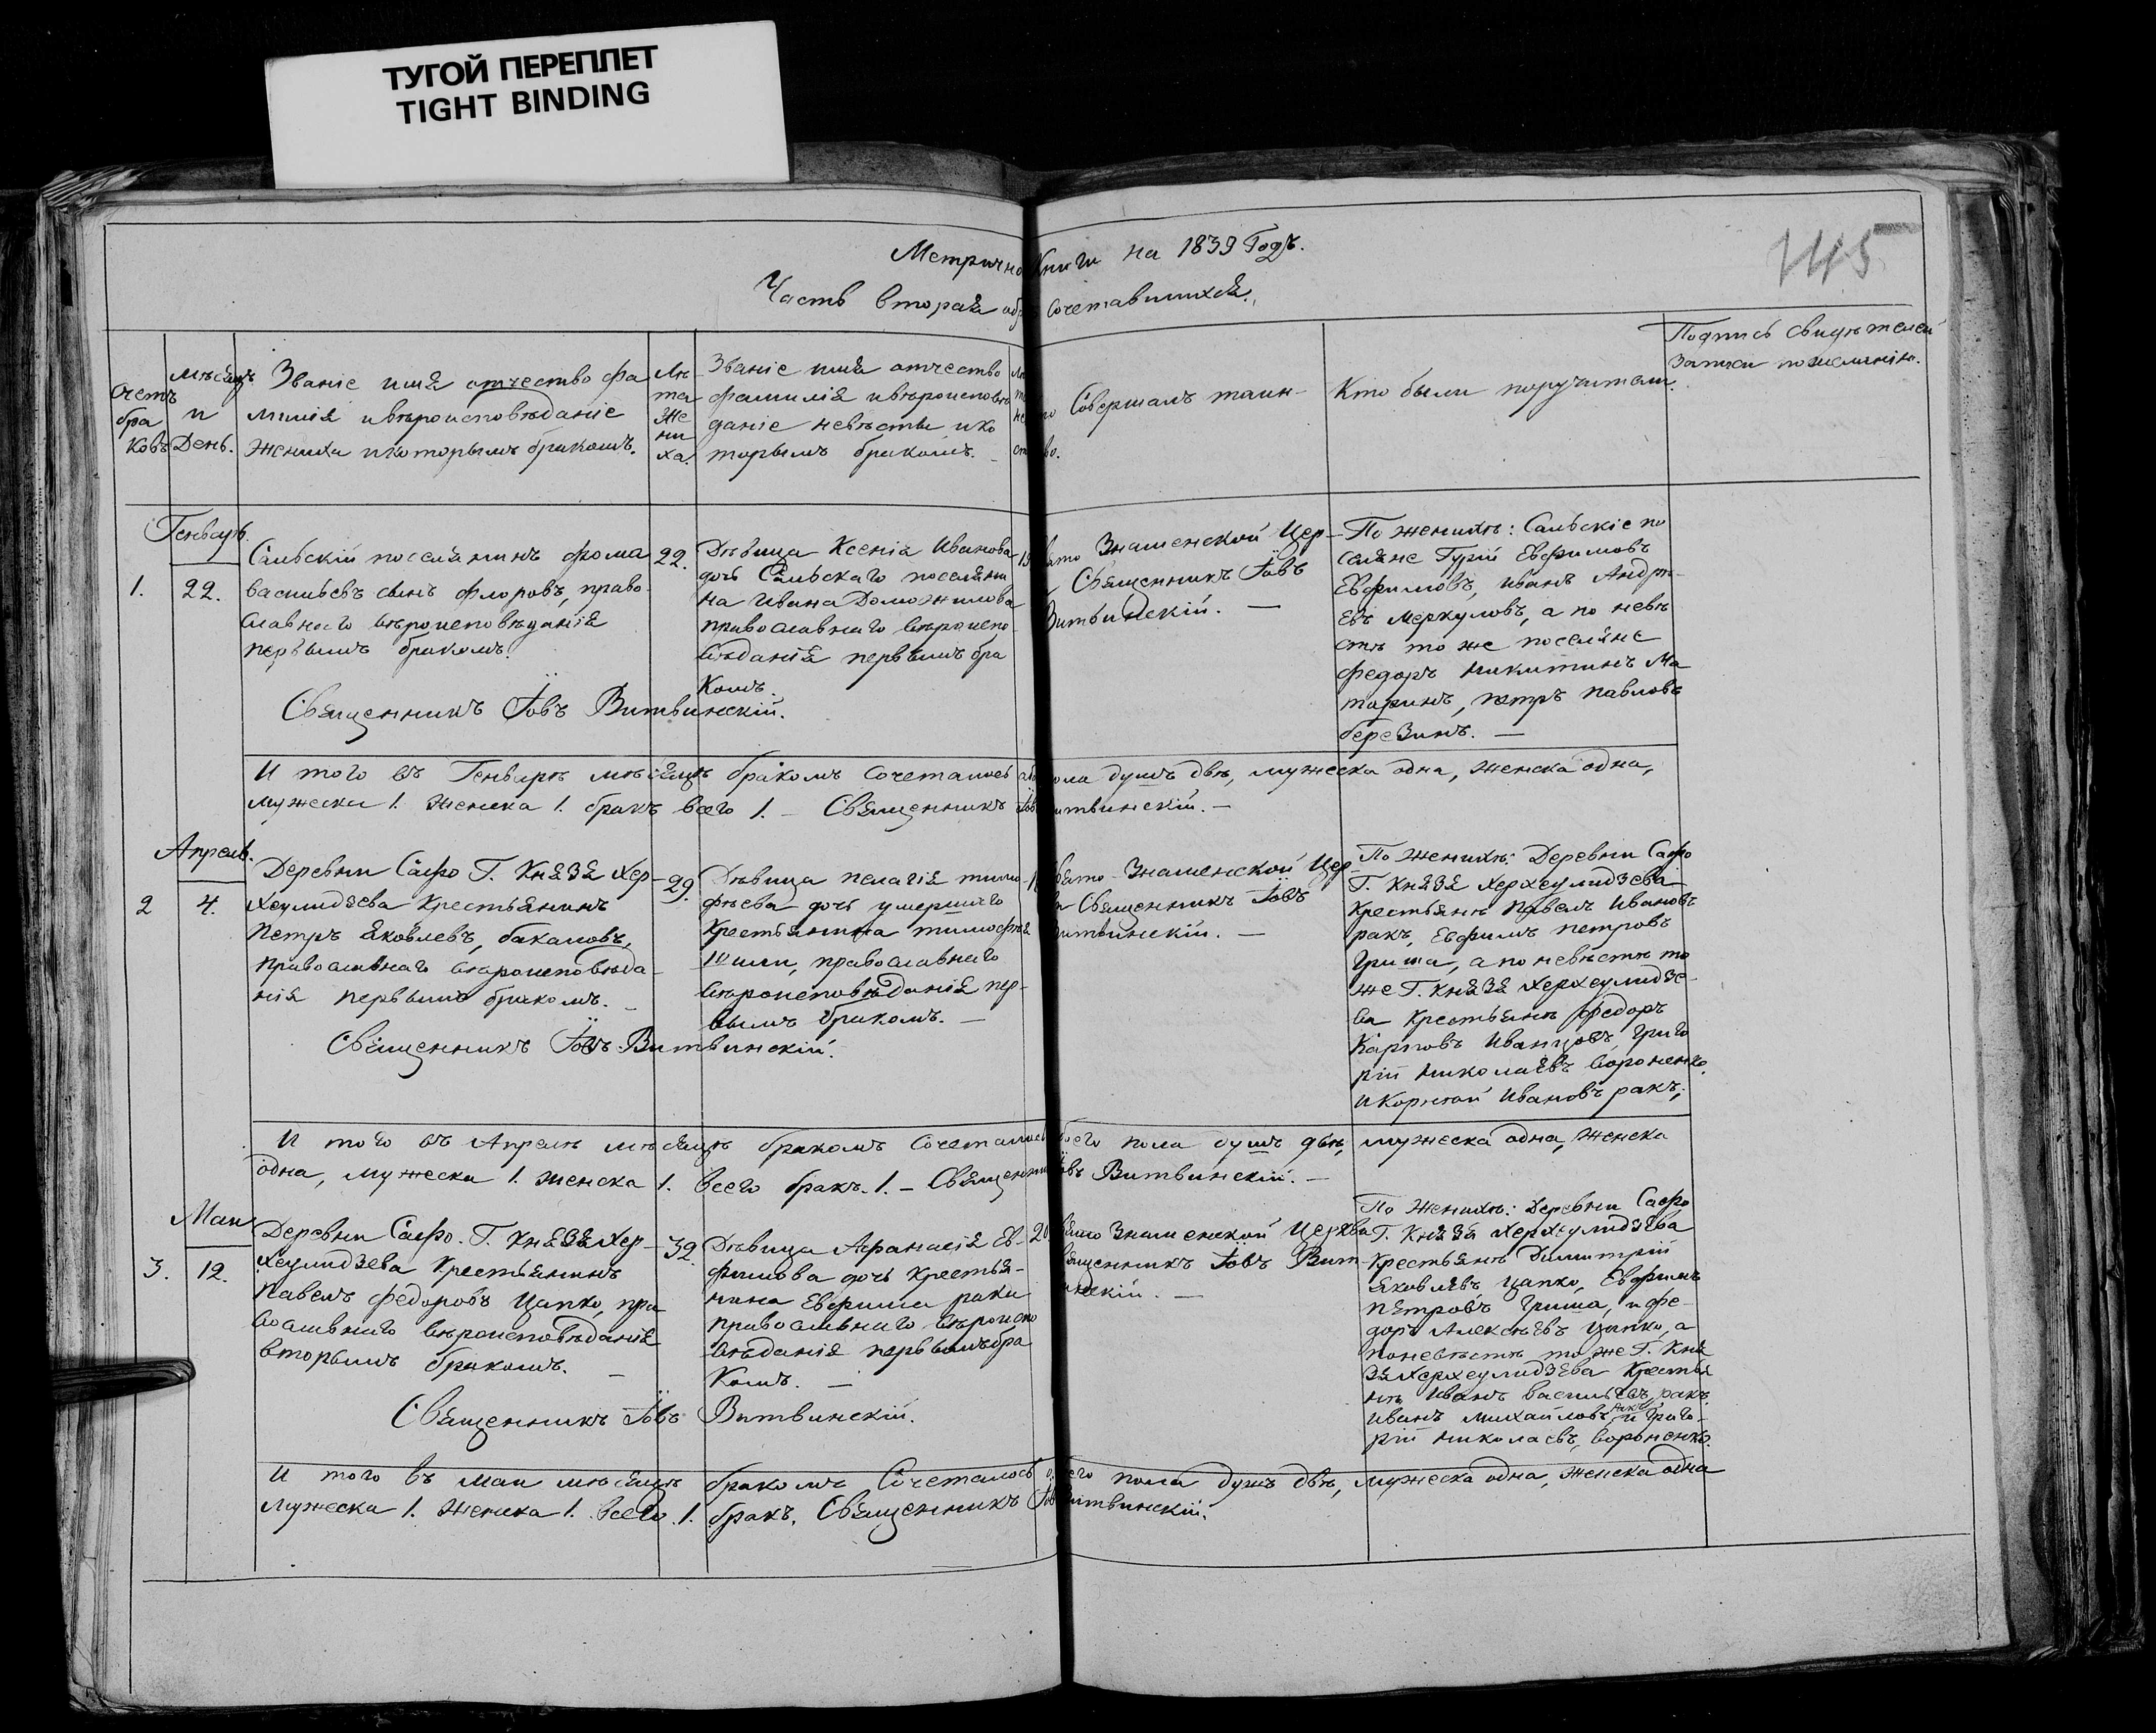 ТУГОЙ ПЕРЕПЛЕТ
TIGHT BINDING
145
Метрично Книги на 1839 Годъ.
Часть вторая о бра Сочетавшихся.
Счетъ
бра
ковъ
мѣсяцъ
и
День.
Званіе имя отчество фа
милія ивѣроисповѣданіе
жениха икоторымъ бракомъ.
Лѣ
та
же
ни
ха.
Званіе имя отчество
фамилія ивѣроисповѣ
даніе невѣсты ико
торымъ бракомъ.
Совершалъ таин-
во.
Кто были поручители.
Подпись свидѣтелей
Записи пожеланію.
Генварь.
1.
22.
Сальскій поселянинъ фома
васильевъ сынъ флоровъ, право
славнаго вѣроисповѣданія
первымъ бракомъ.
22.
Дѣвица Ксенія Иванова
дочь Сальскаго поселяни
на Ивана Доможилова
православнаго вѣроиспо
вѣданія первымъ бра
комъ.
Знаменской Цер-
Священникъ Іовъ
Витвинскій. —
По женихѣ: Сальскіе по
селяне Гурій Евфимовъ
Евфимовъ, иванъ Андре-
евъ Меркуловъ, а по невѣ
стѣ то же поселяне
федоръ никитинъ Ма
таринъ, петръ павловъ
березинъ. —
Священникъ Іовъ Витвинскій.
И того въ Генварѣ мѣсяцѣ бракомъ Сочеталось обо пола душъ двѣ, мужеска одна, женска одна,
мужеска 1. женска 1. бракъ всего 1. — Священникъ Іов итвинскій. —
Апрель.
2
4.
Деревни Сафо Г. Князя Хер-
хеулидзева Крестьянинъ
Петръ яковлевъ, бакаловъ,
православнаго вѣроисповѣда-
нія первымъ бракомъ. —
29.
Дѣвица пелагія тимо-
фѣева дочь умершаго
Крестьянина тимофѣя
православнаго
вѣроисповѣданія пер-
вымъ бракомъ. —
вято-Знаменской Цер-
Священникъ Іовъ
Витвинскій. —
По женихѣ: Деревни Сафо
Г. Князя Херхеулидзева
Крестьянѣ павелъ Ивановъ
ракъ, Евфимъ петровъ
Гриша, а по невѣстѣ то
же Г. Князя Херхеулидзе-
ва Крестьянѣ федоръ
Карповъ Иванцовъ, Григо
рій николаевъ вороненко,
и Корнѣй Ивановъ ракъ;
Священникъ Іовъ Витвинскій.
И того въ Апрелѣ мѣсяцѣ бракомъ Сочеталось боего пола душъ двѣ, мужеска одна, женска
одна, мужеска 1. женска 1. всего бракъ. 1. — Священник овъ Витвинскій. —
Маи
3.
12.
Деревни Сафо. Г. Князя Хер-
хеулидзева Крестьянинъ
Павелъ федоровъ Цапко, пра
вославнаго вѣроисповѣданія
вторымъ бракомъ. —
32.
Дѣвица Афанасія Ев-
фимова дочь крестья-
нина Евфима рака
православнаго вѣроиспо
вѣданія первымъ бра
комъ. —
20
вято Знаменской Церкви
вященникъ Іовъ Вит-
инскій. —
По женихѣ: Деревни Сафо
Г. Князя Херхеулидзева
Крестьянѣ Димитрій
яковлевъ Цапко, Евфимъ
петровъ Гриша, и фе-
доръ Алексѣевъ цапко, а
поневѣстѣ то же Г. Кня
зя Херхеулидзева Крестья
нѣ Иванъ васильевъ ракъ,
иванъ михайловъ ракъ и Григо-
рій николаевъ, вороненко.
Священникъ Іовъ Витвинскій.
И того въ Маи мѣсяцѣ бракомъ Сочеталось о его пола душъ двѣ, мужеска одна, женска одна
мужеска 1. женска 1. всего. 1. бракъ. Священникъ Іов Витвинскій.